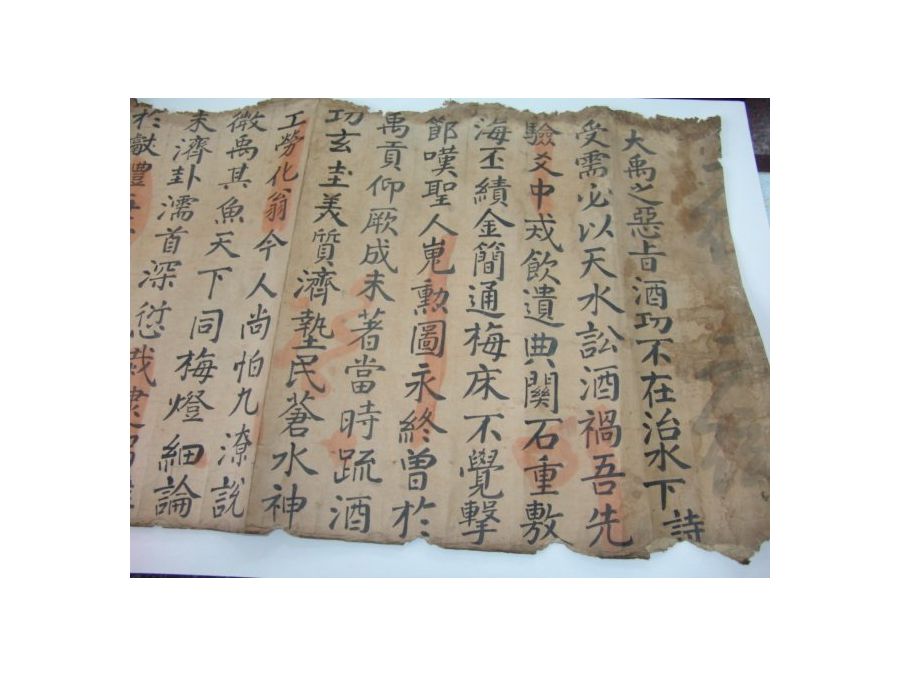 大禹之惡旨酒功不在治水下 詩
受需必以天水訟酒禍吾先
驗爻中戎飲遺典關石重敷
海丕績金簡通梅床不覺擊
節嘆聖人嵬勳圖永終曾於
禹貢仰厥成未著當時疏酒
功玄圭美質濟墊民蒼水神
工勞化翁今人尚怕九潦說
微禹其魚天下同梅燈細論
未濟卦濡首深愆哉
於獻豊